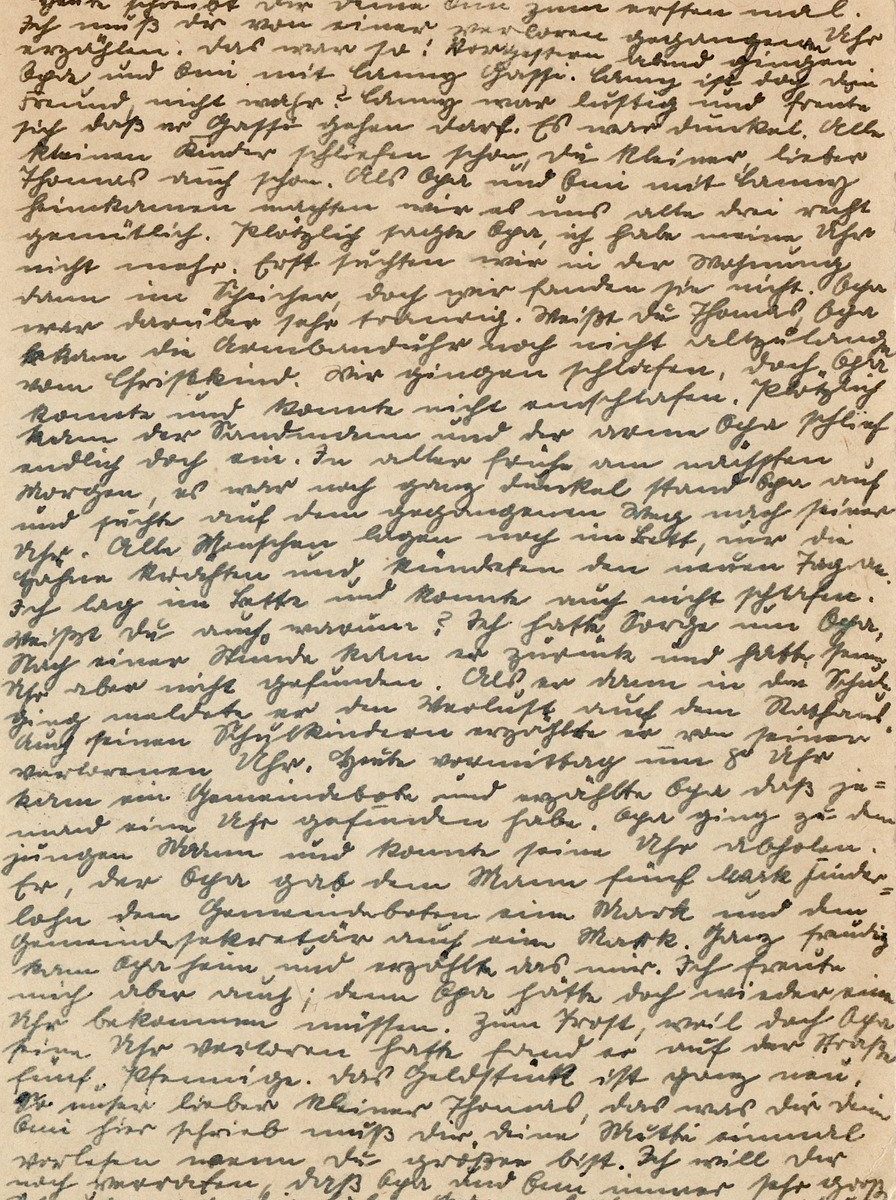 schreibt dir deine Omi zum ersten mal.
Ich muß dir von einer verloren gegangenen Uhr
erzählen. Das war so: Vorgestern Abend gingen
Opa und Omi mit Lanny Gassi. Lanny ist doch dein
Freund, nicht wahr? Lanny war lustig und freute
sich daß er Gassi gehen darf. Es war dunkel. Alle
kleinen Kinder schliefen schon, du kleiner, lieber
Thomas auch schon. Als Opa und Omi mit Lanny
heimkamen machten wir es uns alle drei recht
gemütlich. Plötzlich sagte Opa, ich habe meine Uhr
nicht mehr. Erst suchten wir in der Wohnung
dann im Speicher, doch wir fanden sie nicht. Opa
war darüber sehr traurig. Weißt du Thomas, Opa
bekam die Armbanduhr noch nicht allzulange
vom Christkind. Wir gingen schlafen, doch Opa
konnte und konnte nicht einschlafen. Plötzlich
kam der Sandmann und der arme Opa schlief
endlich doch ein. In aller Frühe am nächsten
Morgen, es war noch ganz dunkel stand Opa auf
und suchte auf dem gegangenen Weg nach seiner
Uhr. Alle Menschen lagen noch im Bett, nur die
Hähne krähten und kündeten den neuen Tag an.
Ich lag im Bette und konnte auch nicht schlafen.
Weißt du auch warum? Ich hatte Sorge um Opa.
Nach einer Stunde kam er zurück und hatte seine
Uhr aber nicht gefunden. Als er dann in die Schule
ging meldete er den Verlust auf dem Rathaus.
Auch seinen Schulkindern erzählte er von seiner
verlorenen Uhr. Heute vormittag um 8 Uhr
kam ein Gemeindebote und erzählte Opa daß je=
mand eine Uhr gefunden habe. Opa ging zu dem
jungen Mann und konnte seine Uhr abholen.
Er, der Opa gab dem Mann fünf Mark Finder=
lohn dem Gemeindeboten eine Mark und dem
Gemeindesekretär auch eine Mark. Ganz freudig
kam Opa heim und erzählte das mir. Ich freute
mich aber auch; denn Opa hätte doch wieder eine
Uhr bekommen müssen. Zum Trost, weil doch Opa
seine Uhr verloren hatte fand er auf der Straße
fünf Pfennige. Das Geldstück ist ganz neu.
So unser lieber kleiner Thomas, das was dir deine
Omi hier schrieb muß dir deine Mutti einmal
vorlesen wenn du größer bist. Ich will dir
noch verraten, daß Opa und Omi immer sehr groß